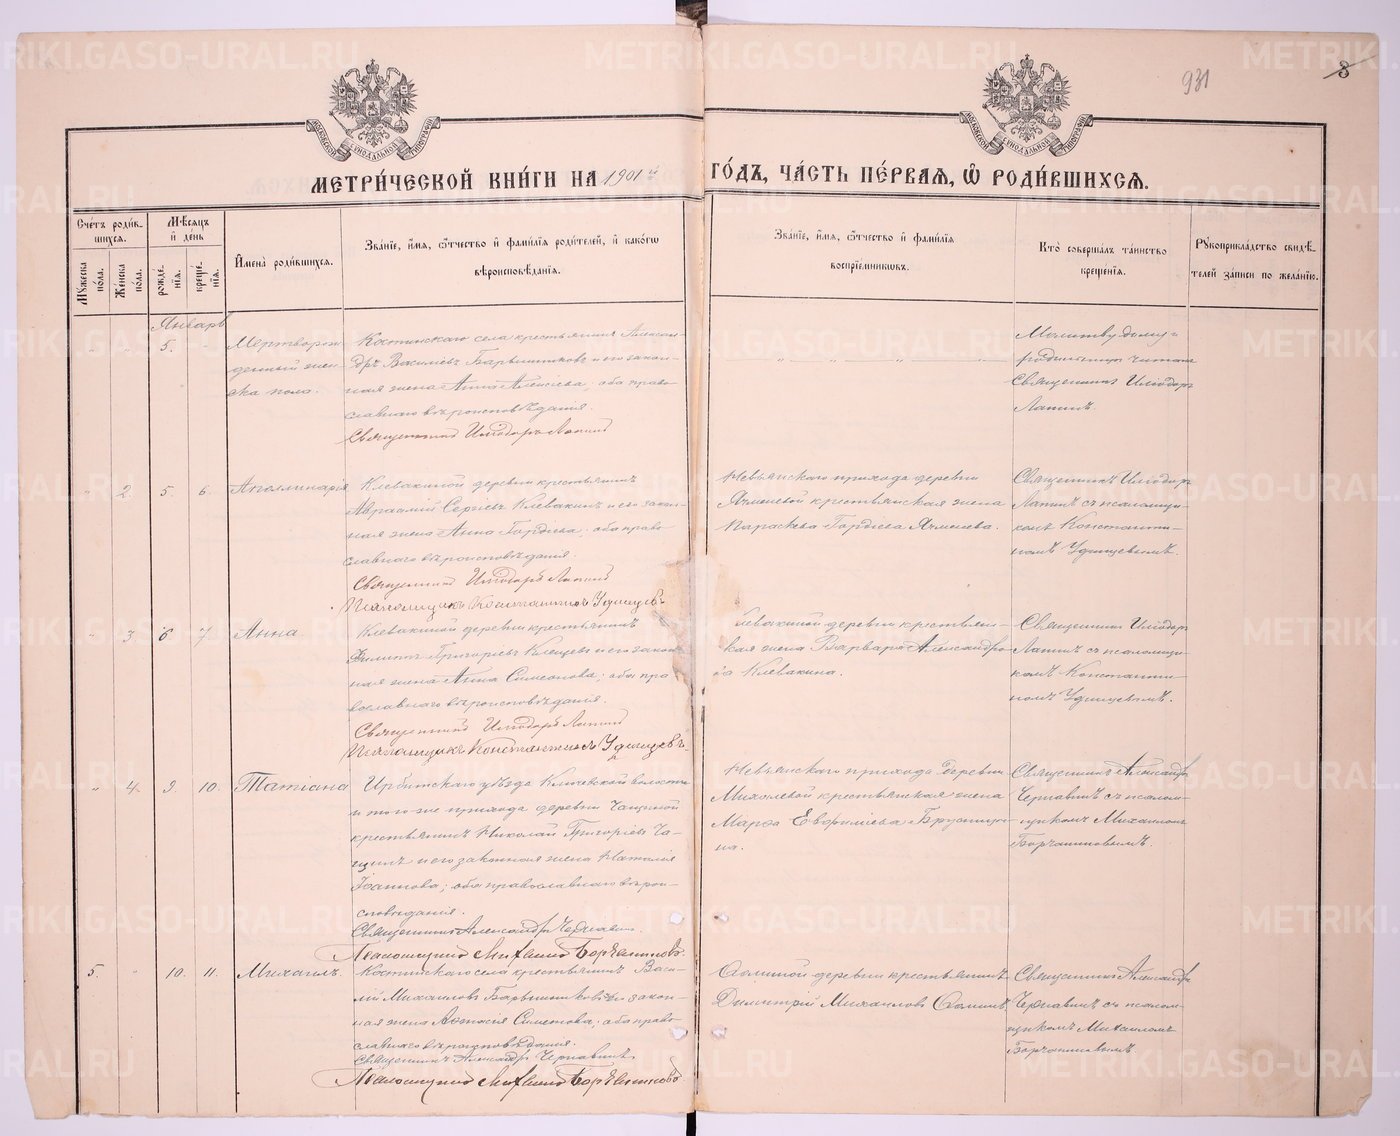 931
3
МОСКОВСКОЙ СѴНОДАЛЬНОЙ ТИПОГРАФІИ
МОСКОВСКОЙ СѴНОДАЛЬНОЙ ТИПОГРАФІИ
МЕТРИ́ЧЕСКОЙ КНИ́ГИ НА 1901й ГО́ДЪ, ЧА́СТЬ ПЕ́РВАѦ, Ѡ РОДИ́ВШИХСѦ.
Сче́тъ роди́вшихсѧ.
Мꙋ́жеска по́ла.
Же́нска по́ла.
Мѣ́сѧцъ и де́нь
рожде́нїѧ.
креще́нїѧ.
И҆мена̀ роди́вшихсѧ.
Зва́нїе, и҆́мѧ, ѻ҆́тчество и҆ фами́лїѧ роди́телей, и҆ како́гѡ
вѣроисповѣ́данїѧ.
Зва́нїе, и҆́мѧ, ѻ҆́тчество и҆ фами́лїѧ
воспрїе́мникѡвъ.
Кто̀ соверша́лъ та́инство
креще́нїѧ.
Рꙋкоприкла́дство свидѣ́телей за́писи по жела́нїю.
Январь
" " 5. "
Мертворож
денный жен
ска пола.
Костинскаго села крестьянинъ Алексан
дръ Васильевъ Барышниковъ и его закон-
ная жена Анна Алексіева, оба право
славнаго вѣроисповѣданія.
Священникъ Иліодоръ Лапинъ
" " " "
Молитву дому и
родильницѣ читалъ
Священникъ Иліодоръ
Лапинъ.
" 2. 5. 6. Аполлинарія
Клевакиной деревни крестьянинъ
Авраамій Сергіевъ Клевакинъ и его закон
ная жена Анна Гордіева, оба право
славнаго вѣроисповѣданія.
Священникъ Иліодоръ Лапинъ
Псаломщикъ Константинъ Удинцевъ
Невьянскаго прихода деревни
Ячменевой крестьянская жена
Параскева Гордіева Ячменева.
Священникъ Иліодоръ
Лапинъ съ псаломщи-
комъ Константи-
номъ Удинцевымъ.
" 3. 6 7. Анна.
Клевакиной деревни крестьянинъ
Филиппъ Григорьевъ Клещевъ и его закон
ная жена Анна Симеонова, оба пра
вославнаго вѣроисповѣданія.
Священникъ Иліодоръ Лапинъ
Псаломщикъ Константинъ Удинцевъ.
левакиной деревни крестьян-
ская жена Варвара Александро
ва Клевакина.
Священникъ Иліодоръ
Лапинъ съ псаломщи-
комъ Константи-
номъ Удинцевымъ.
" 4. 9. 10. Татіана
Ирбитскаго уѣзда Ключевской волости
и того же прихода деревни Чащиной
крестьянинъ Николай Григорьевъ Ча-
щинъ и его законная жена Наталія
Іоаннова; оба православнаго вѣрои-
сповѣданія.
Священникъ Александръ Чернавинъ.
Псаломщикъ Михаилъ Борчаниновъ.
Невьянскаго прихода деревни
Михалевой крестьянская жена
Марѳа Евфиміева Брусницы-
на.
Священникъ Александръ
Чернавинъ съ псалом-
щикомъ Михаиломъ
Борчаниновымъ.
5. " 10. 11. Михаилъ.
Костинскаго села крестьянинъ Васи-
лій Михаиловъ Барышниковъ и его закон-
ная жена Анастасія Симеонова, оба право
славнаго вѣроисповѣданія.
Священникъ Александръ Чернавинъ
Псаломщикъ Михаилъ Борчаниновъ
деревни крестьянинъ
Димитрій Михаиловъ
Священникъ Александръ
Чернавинъ съ псалом-
щикомъ Михаиломъ
Борчаниновымъ.
METRIKI.GASO-URAL.RU